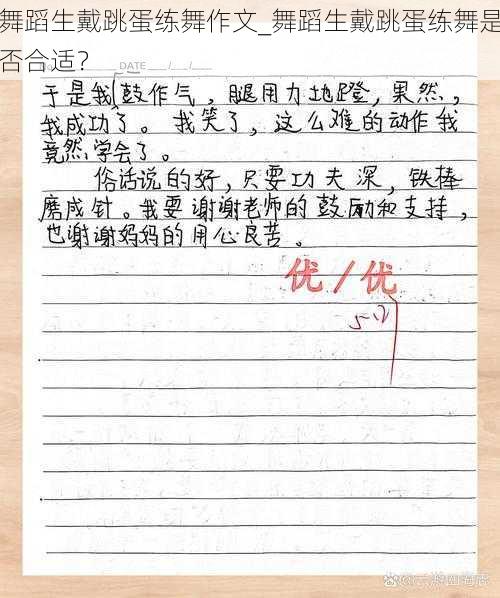 舞蹈生戴跳蛋练舞作文_舞蹈生戴跳蛋练舞是
否合适？
DATE
于是我鼓作气，腿用力地蹬，果然，
我成功了。我笑了，这么难的动作我
竟然学会了。
俗话说的好，只要功夫深，铁棒
磨成针。我要谢谢老师的鼓励和支持，
也谢谢妈妈的用心良苦。
优/优
5-12